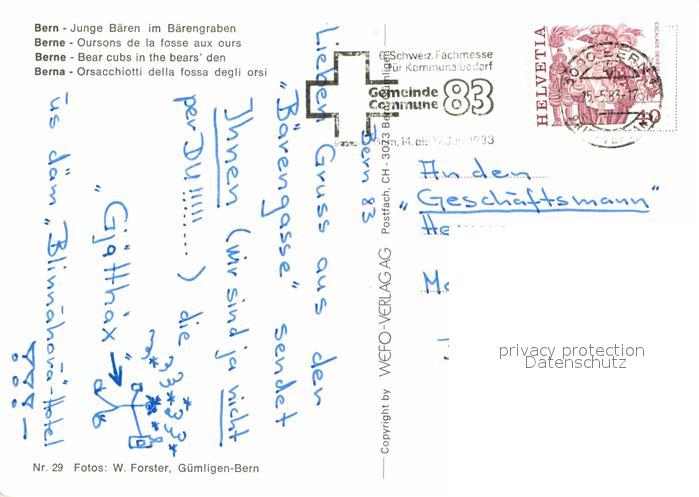 Bern - Junge Bären im Bärengraben
Berne - Oursons de la fosse aux ours
Berne - Bear cubs in the bears' den
Berna - Orsacchiotti della fossa degli orsi
Bern 83
Lieben Gruss aus der
"Bärengasse" sendet
Ihnen (wir sind ja nicht
per DU!!!!!.......) die
"Gjätthäx"
us däm "Blinnahova-Hotel
Schweiz. Fachmesse
für Kommunalbedarf
Gemeinde
Commune 83
HELVETIA
40
An den
"Geschäftsmann"
He
Copyright by WEFO-VERLAG AG Postfach, CH - 3073 Bern-Gümligen
privacy protection
Datenschutz
Nr. 29 Fotos: W. Forster, Gümligen-Bern